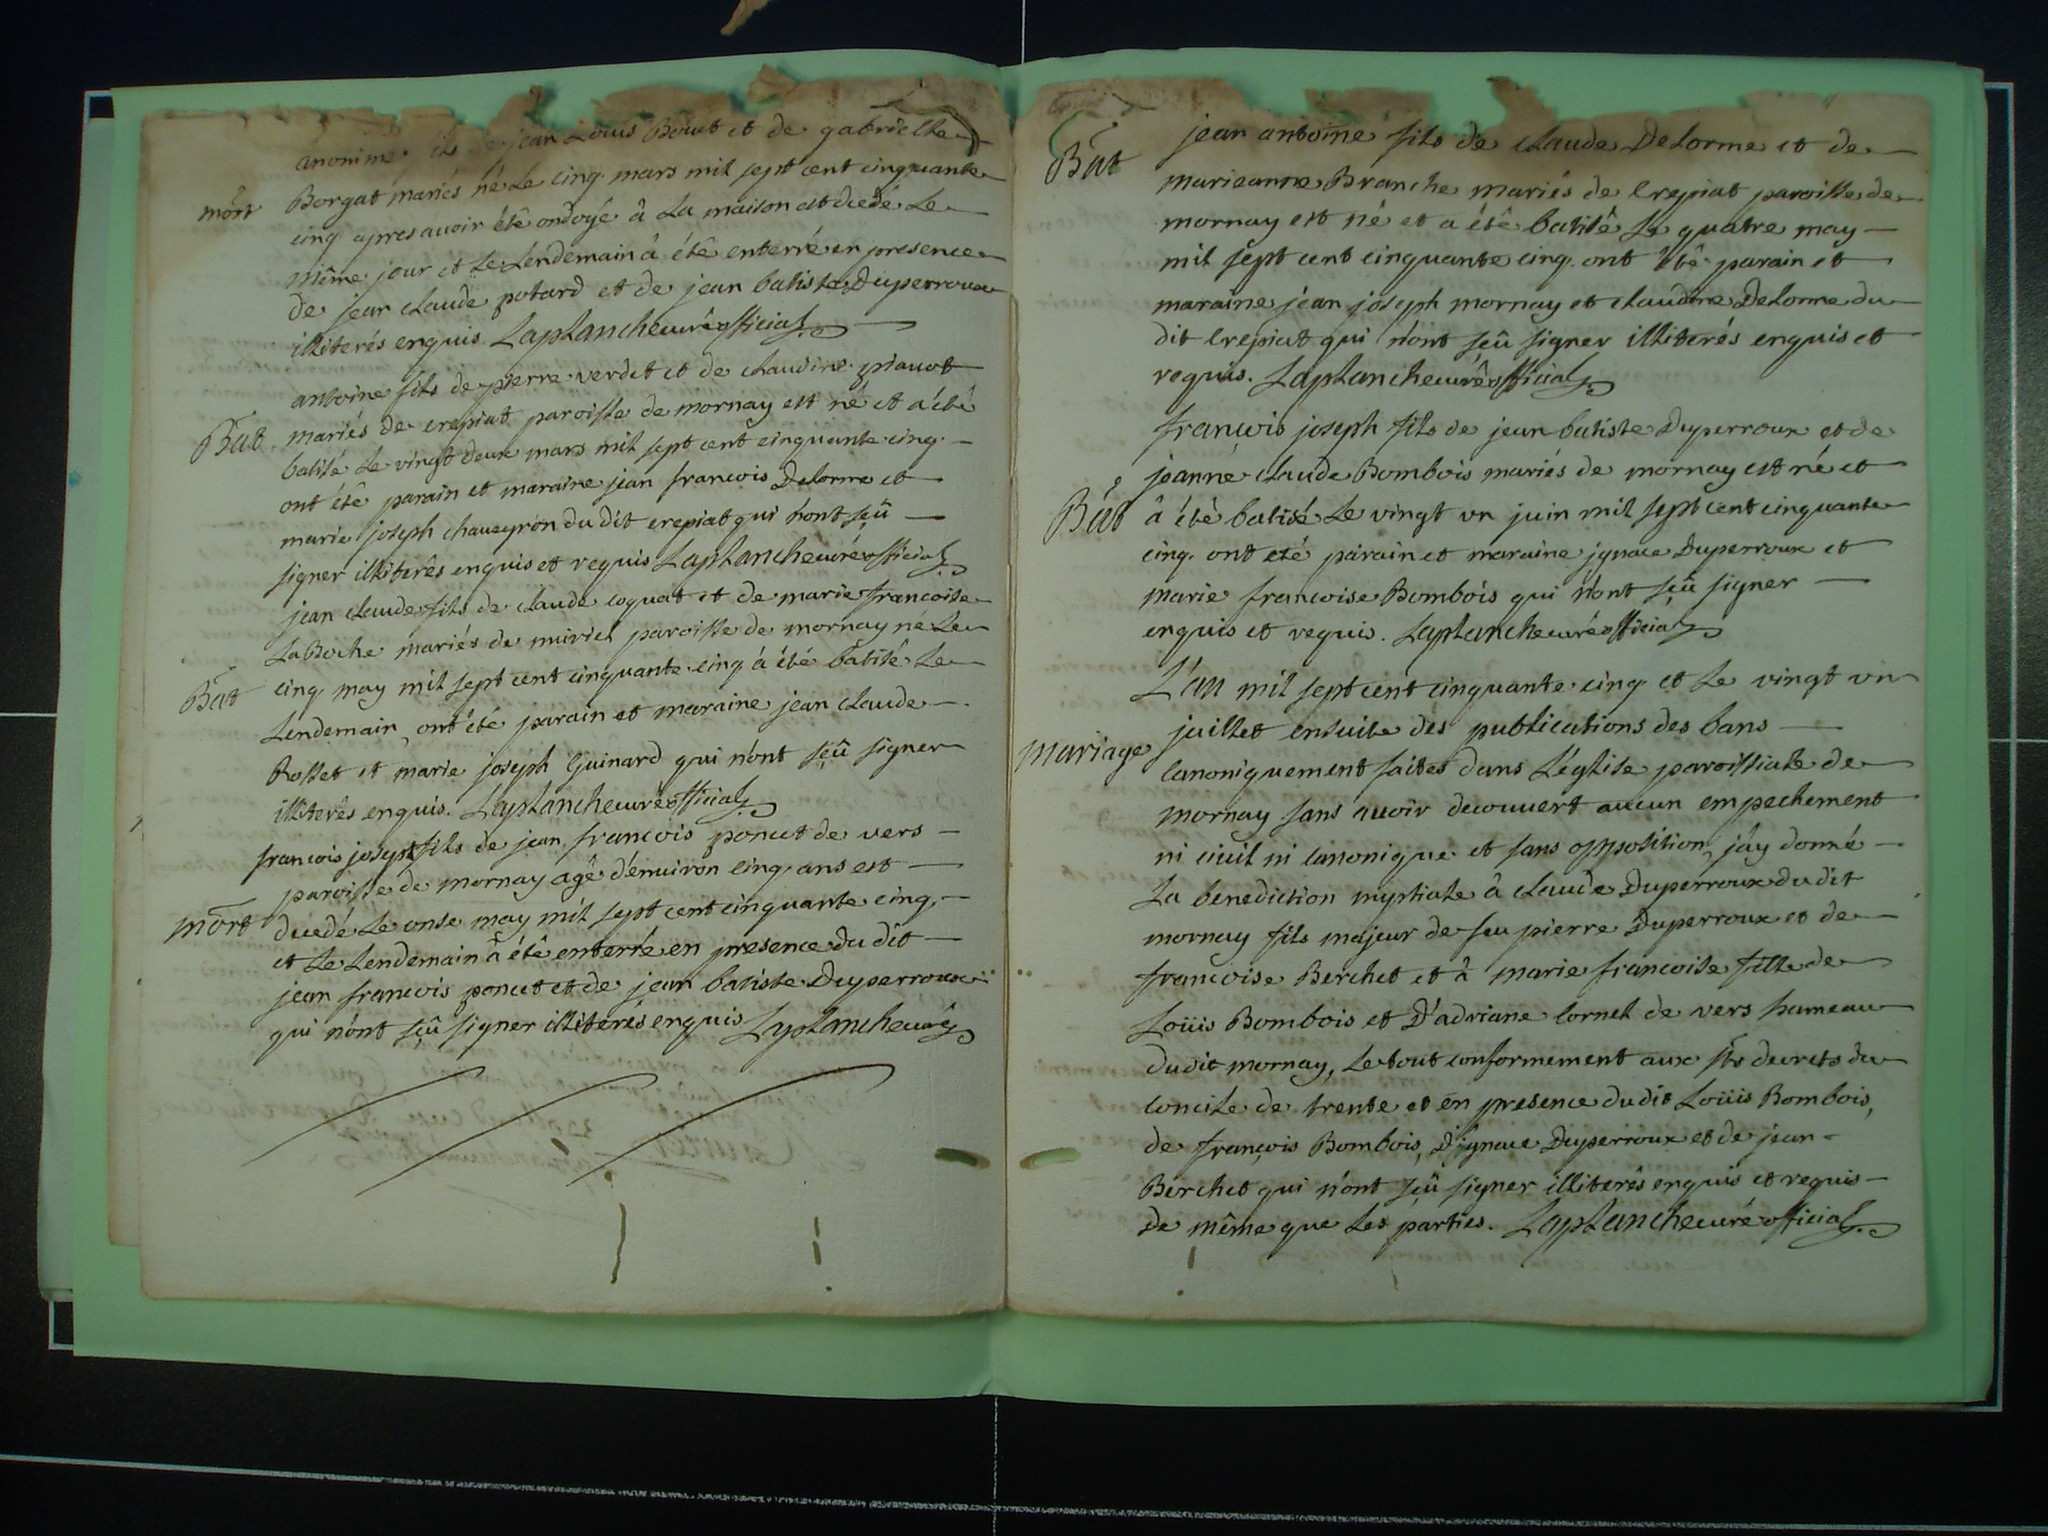 anonime fils de jean Louis Bouut et de gabrielle
mort
Borgat mariés né Le cinq mars mil sept cent cinquante
cinq apres avoir été ondoyé â La maison est decedé Le
même jour et Le Lendemain â été enterré en presence
de jean claude potard et de jean batiste Duperroux
illiterés enquis Laplanche curé official
antoine fils de pierre verdet et de claudine piauot
Bat
mariés de crepiat paroisse de mornay est né et a été
batisé Le vingt deux mars mil sept cent cinquante cinq
ont été parain et maraine jean francois Delorme et
marie joseph chaueyron du dit crepiat qui n'ont sçû
signer illiterés enquis et requis Laplanche curé official
jean claude fils de claude coquat et de marie francoise
LaBoche mariés de muriel paroisse de mornay né Le
Bat
cinq may mil sept cent cinquante cinq â été batisé Le
Lendemain, ont été parain et maraine jean claude
Rosset et marie joseph Guinard qui n'ont sçû signer
illiterés enquis. Laplanche curé official
francois joseph fils de jean francois poncet de vers
paroisse de mornay agé d'enuiron cinq ans est
mort
decedé Le onse may mil sept cent cinquante cinq
et Le Lendemain â été enterré en presence du dit
jean francois poncet et de jean batiste Duperroux
qui n'ont sçû signer illiterés enquis Laplanche curé
Bat
jean antoine fils de claude Delorme et de
marieanne Branche mariés de crepiat paroisse de
mornay est né et a été batisé Le quatre may
mil sept cent cinquante cinq. ont été parain et
maraine jean joseph mornay et claudine Delorme du
dit crepiat qui n'ont sçû signer illiterés enquis et
requis. Laplanche curé official
françois joseph fils de jean batiste Duperroux et de
jeanne claude Bombois mariés de mornay est né et
Bat
â été batisé Le vingt un juin mil sept cent cinquante
cinq. ont été parain et maraine jgnace Duperroux et
marie francoise Bombois qui n'ont sçû signer
enquis et requis. Laplanche curé official
L'an mil sept cent cinquante cinq et Le vingt un
juillet ensuite des publications des bans
mariage
canoniquement faites dans L'église paroissiale de
mornay sans avoir decouvert aucun empechement
ni civil ni canonique et sans opposition, j'ay donné
La benediction nuptiale â claude Duperroux du dit
mornay fils majeur de feu pierre Duperroux et de
francoise Berchet et â marie francoise fille de
Loüis Bombois et D'adriane cornet de vers hameau
dudit mornay, Le tout conformement aux sts decrets du
concile de trente et en presence du dit Loüis Bombois,
de françois Bombois, D'jgnace Duperroux et de jean
Berchet qui n'ont sçû signer illiterés enquis et requis
de même que Les parties. Laplanche curé official